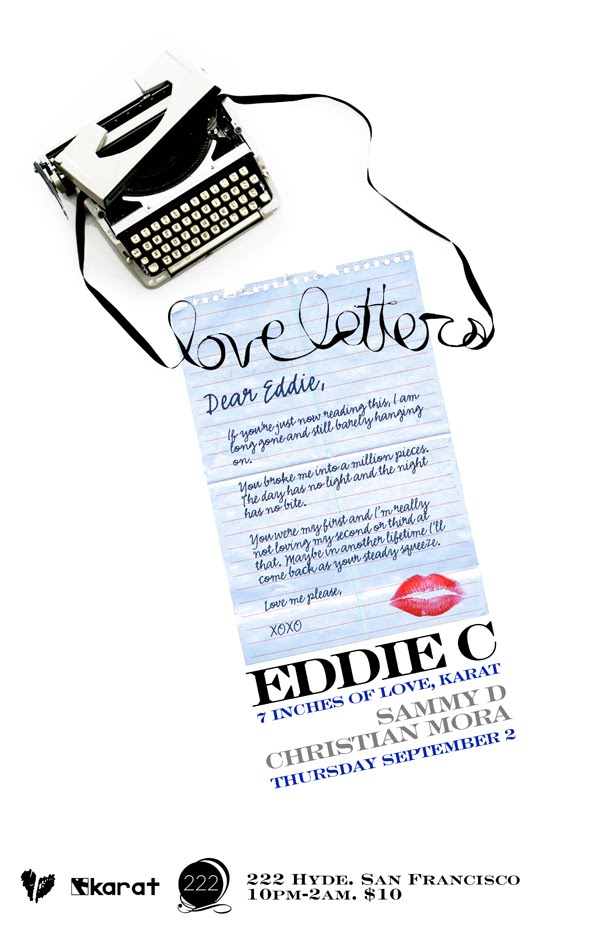 love letters
Dear Eddie,
If you're just now reading this, I am
long gone and still barely hanging
on.
You broke me into a million pieces.
The day has no light and the night
has no bite.
You were my first and I'm really
not loving my second or third at
that. Maybe in another lifetime I'll
come back as your steady squeeze.
Love me please,
XOXO
EDDIE C
7 INCHES OF LOVE, KARAT
SAMMY D
CHRISTIAN MORA
THURSDAY SEPTEMBER 2
karat
222
222 HYDE. SAN FRANCISCO
10PM-2AM. $10